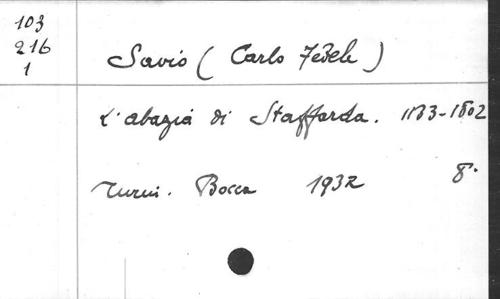 103
216
1
Savio (Carlo Fedele)
L'abazia di Staffarda. 1133-1802
Turin. Bocca 1932 8°